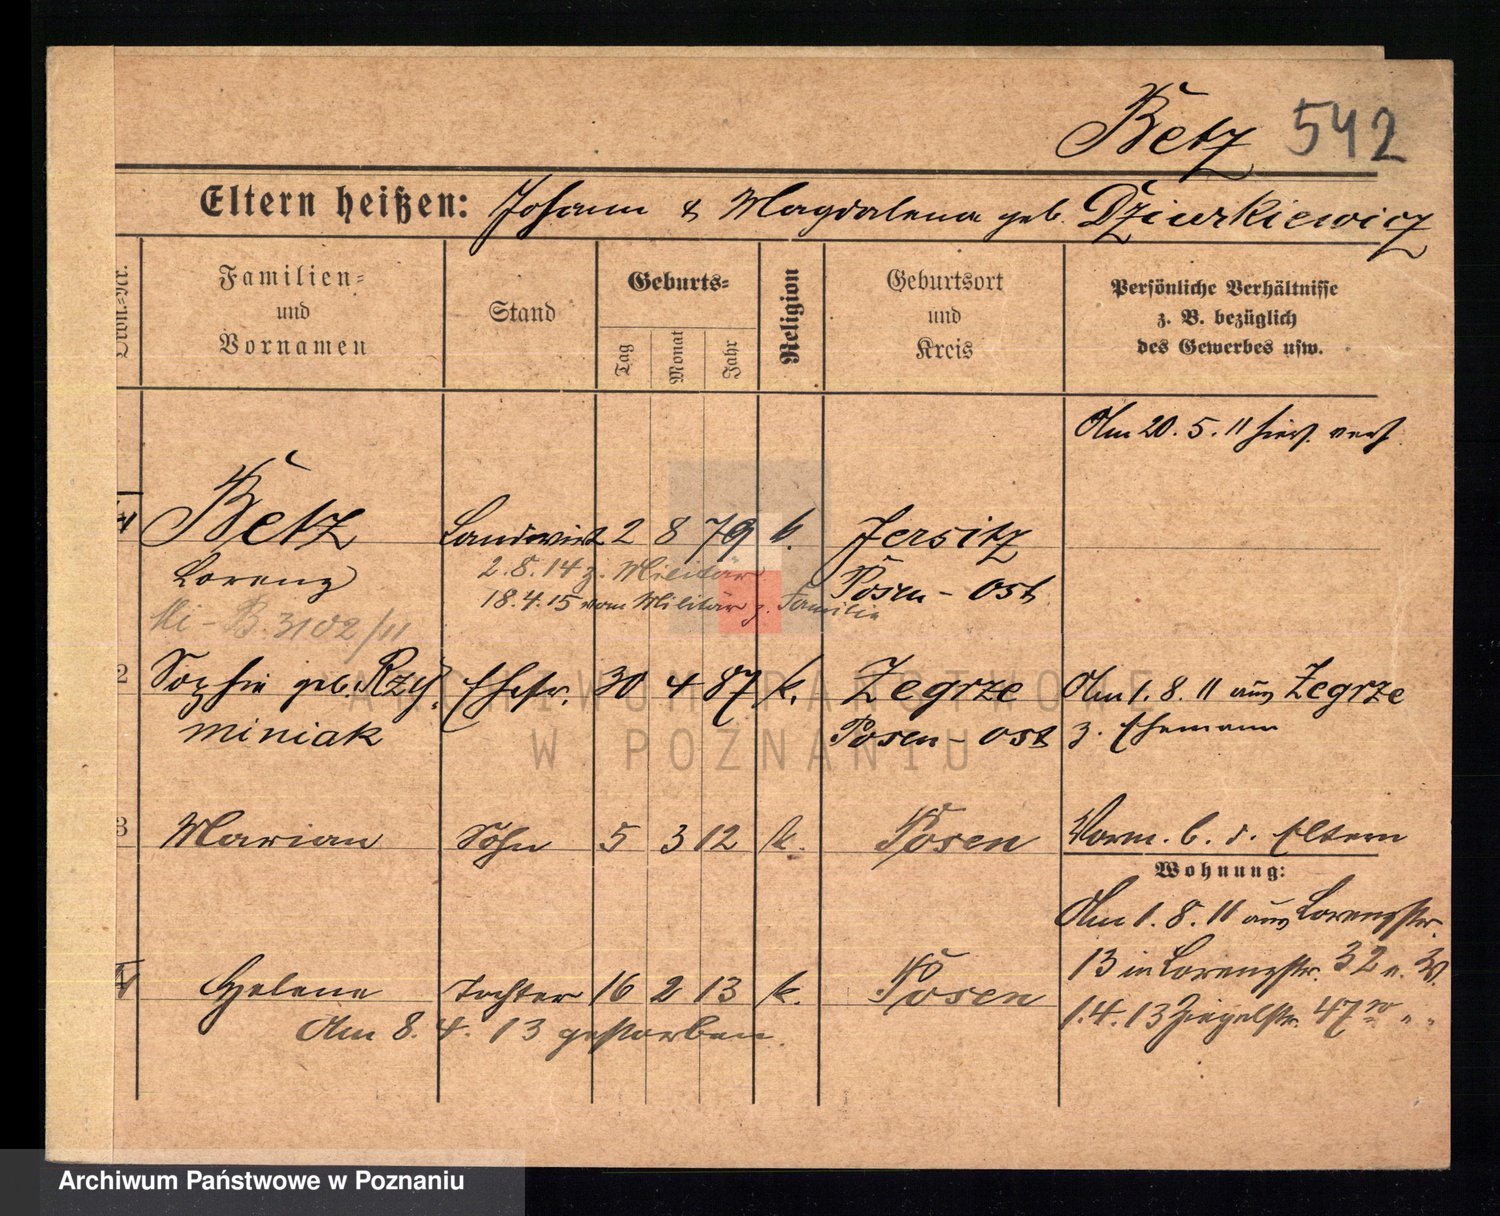 Betz 542
Eltern heißen: Johann & Magdalena geb. Dziurkiewicz
Familien=
und
Vornamen
Stand
Geburts=
Tag
Monat
Jahr
Religion
Geburtsort
und
Kreis
Persönliche Verhältnisse
z. B. bezüglich
des Gewerbes usw.
Am 20. 5. 11 hies.
Betz Landwirt 2 8 79 k. Jersitz
Lorenz 2.8.14 z. Militär Posen - Ost
18.4.15 vom Militär z. Familie
B. 3102/11
2 Sophie geb. Rzy= Ehefr. 30 4 87 k. Zegrze Am 1. 8. 11 aus Zegrze
miniak Posen - Ost z. Ehemann
3 Marian Sohn 5 3 12 k. Posen Vorm. b. d. Eltern
Wohnung:
Am 1. 8. 11 aus Lorenzstr.
13 in Lorenzstr. 32 e. W.
4 Helene Tochter 16 2 13 k. Posen
1.4.13 Ziegelstr. 47 " "
Am 8. 4. 13 gestorben.
ARCHIWUM PAŃSTWOWE
W POZNANIU
Archiwum Państwowe w Poznaniu